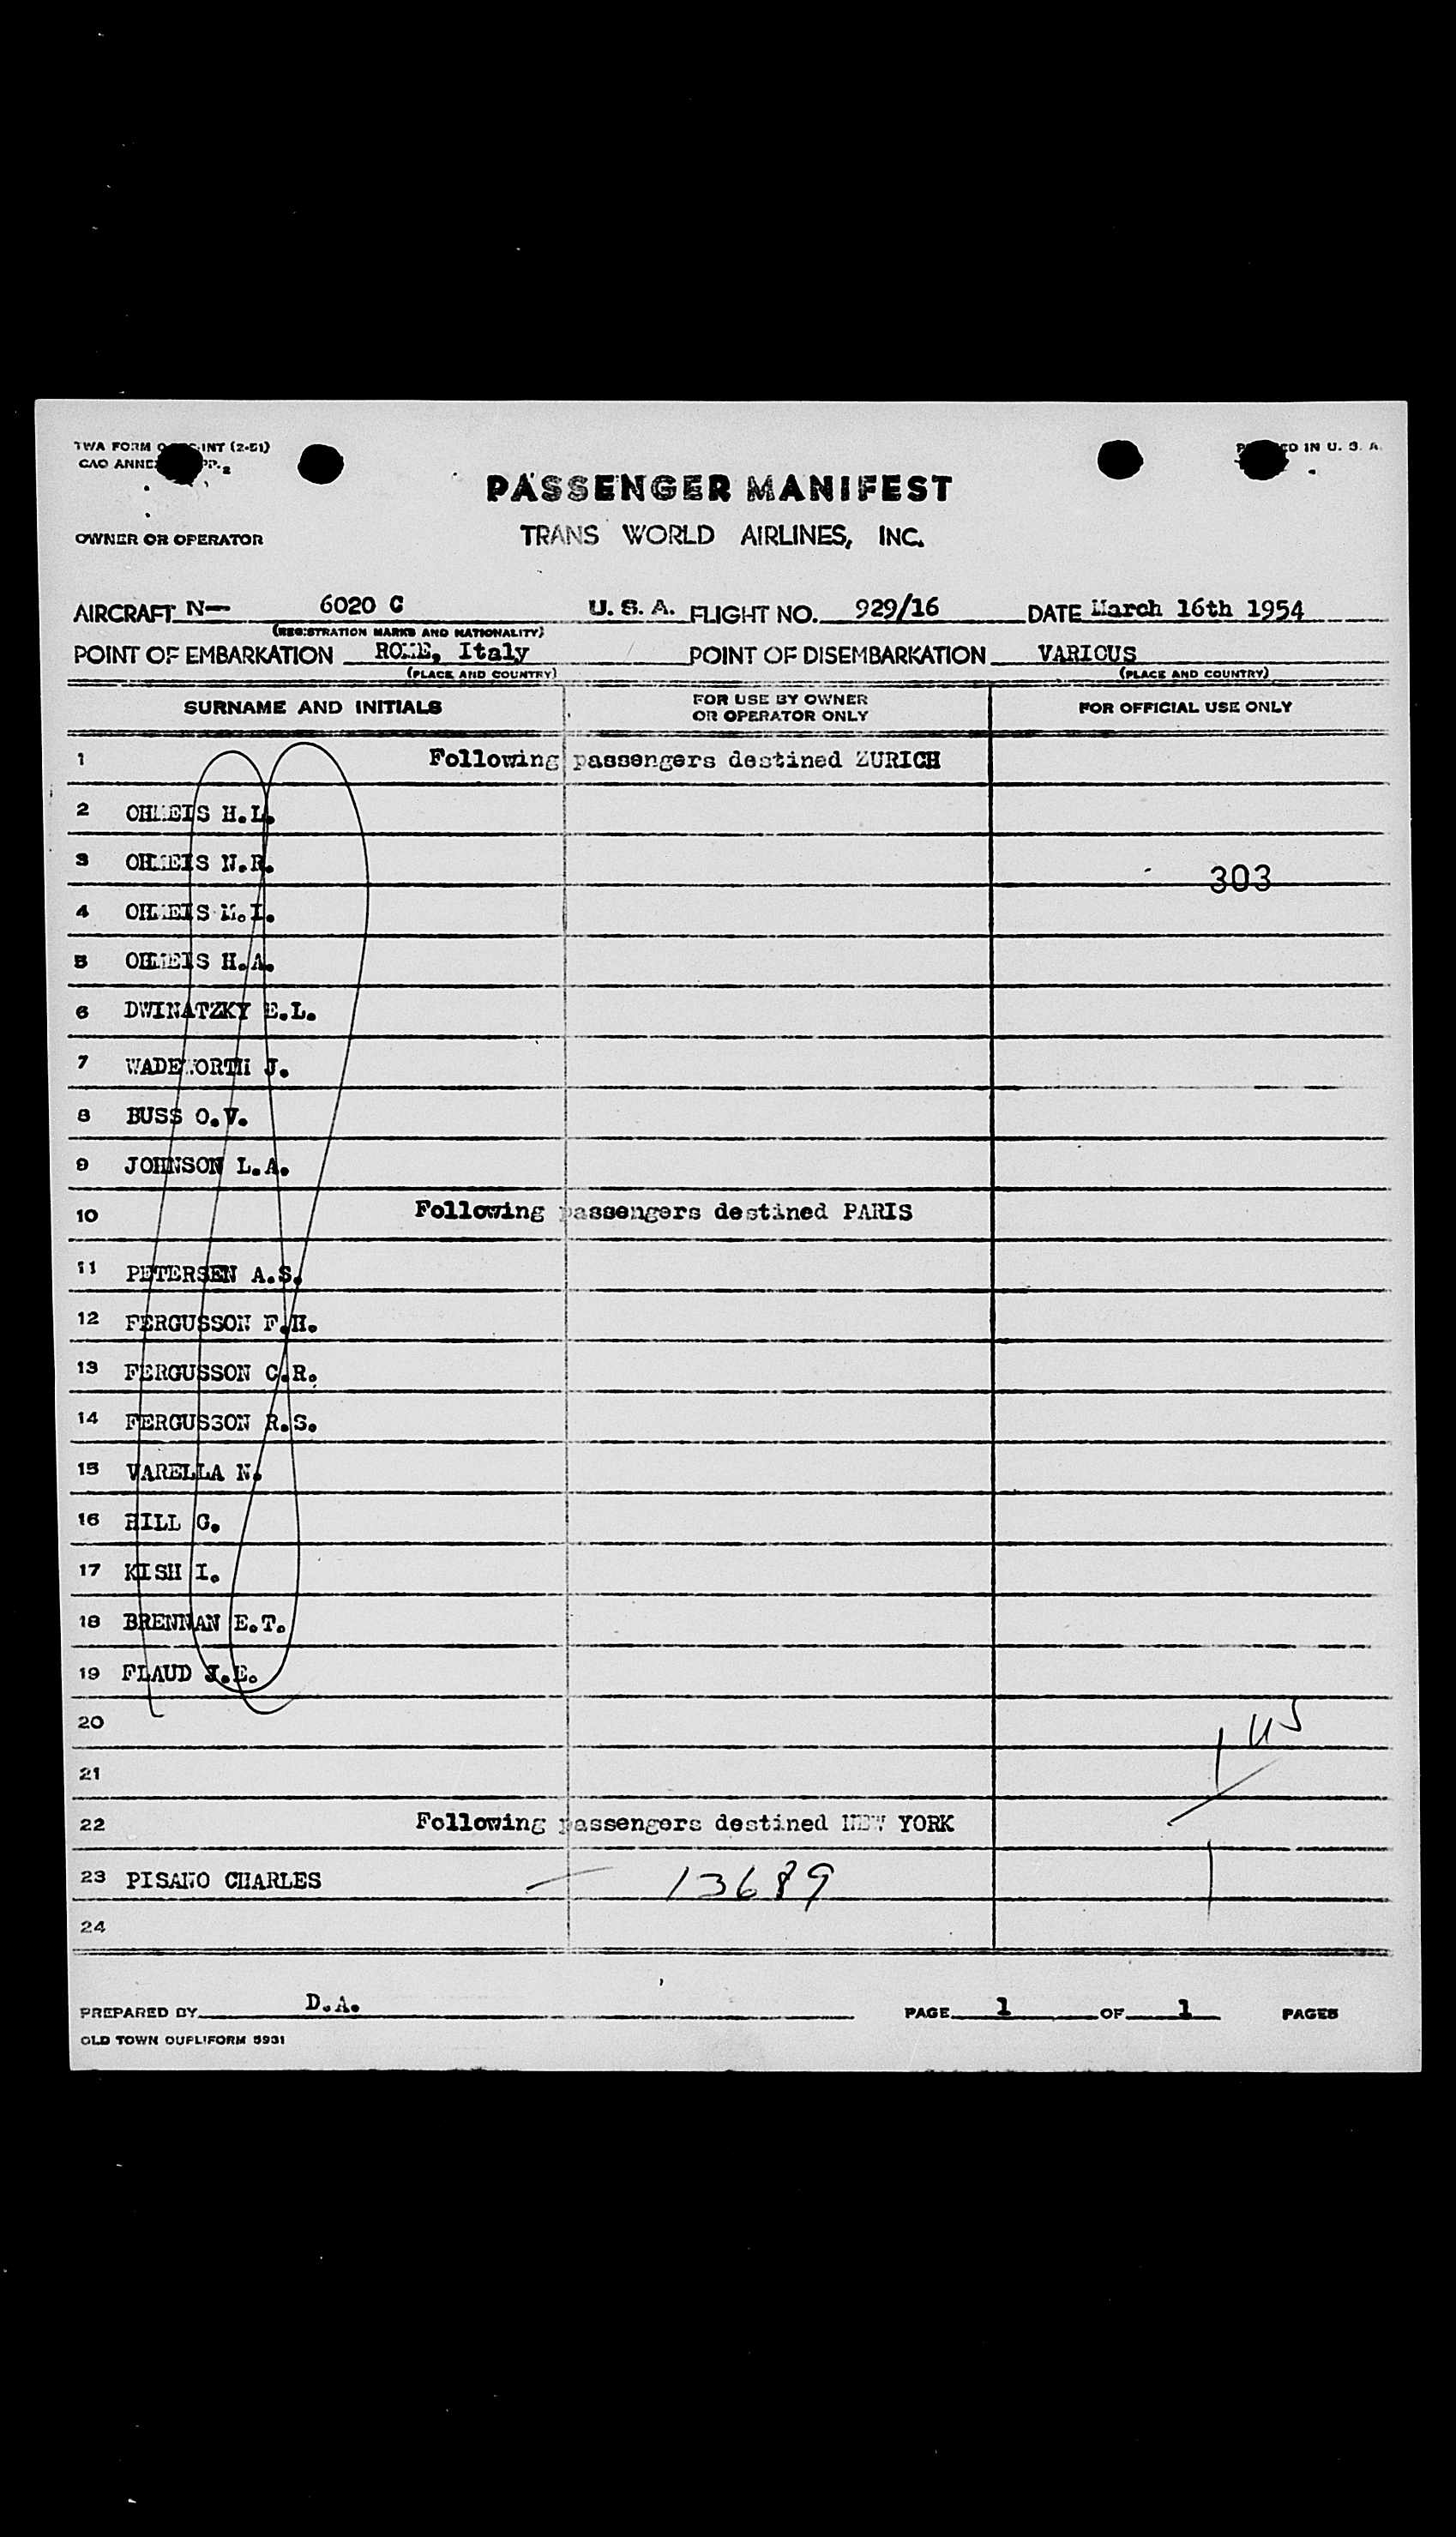 TWA FORM INT (2-51)
CAO ANNE PP. 2
PRINTED IN U. S. A.
PASSENGER MANIFEST
OWNER OR OPERATOR
TRANS WORLD AIRLINES, INC.
AIRCRAFT N— 6020 C U. S. A. FLIGHT NO. 929/16 DATE March 16th 1954
(REGISTRATION MARKS AND NATIONALITY)
POINT OF EMBARKATION ROME, Italy POINT OF DISEMBARKATION VARIOUS
(PLACE AND COUNTRY) (PLACE AND COUNTRY)
SURNAME AND INITIALS FOR USE BY OWNER OR OPERATOR ONLY FOR OFFICIAL USE ONLY
1 Following passengers destined ZURICH
2 OHMEIS H.L.
3 OHMEIS N.R.
303
4 OHMEIS M.I.
5 OHMEIS H.A.
6 DWINATZKY E.L.
7 WADEWORTH J.
8 BUSS O.V.
9 JOHNSON L.A.
10 Following passengers destined PARIS
11 PETERSEN A.S.
12 FERGUSSON F.H.
13 FERGUSSON C.R.
14 FERGUSSON R.S.
15 VARELLA N.
16 HILL G.
17 KISH I.
18 BRENNAN E.T.
19 FLAUD J.E.
20
1 US
21
22 Following passengers destined NEW YORK
23 PISANO CHARLES — 13689 1
24
PREPARED BY D.A. PAGE 1 OF 1 PAGES
OLD TOWN DUPLIFORM 5931